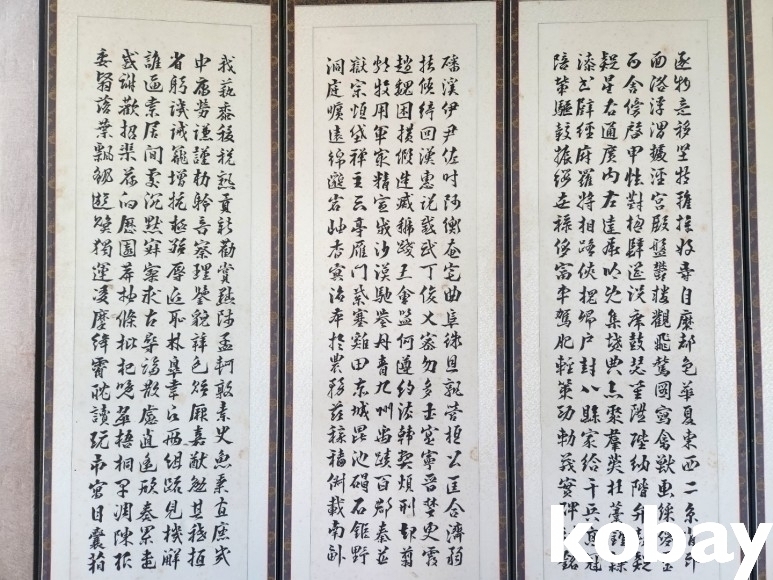 逐物意移堅持雅操好爵自縻都邑華夏東西二京背邙
面洛浮渭據涇宮殿盤鬱樓觀飛驚圖寫禽獸畫綵仙靈
丙舍傍啓甲帳對楹肆筵設席鼓瑟吹笙陞階納陛弁轉
疑星右通廣內左達承明既集墳典亦聚群英杜藁鍾隸
漆書壁經府羅將相路俠槐卿戶封八縣家給千兵高冠
陪輦驅轂振纓世祿侈富車駕肥輕策功勒茂實碑銘
磻溪伊尹佐時阿衡奄宅曲阜微旦孰營桓公匡合濟弱
扶傾綺回漢惠說感武丁俊乂密勿多士寔寧晉楚更霸
趙魏困橫假途滅虢踐土會盟何遵約法韓弊煩刑起翦
頗牧用軍最精宣威沙漠馳譽丹青九州禹跡百郡秦并
嶽宗恒岱禪主云亭雁門紫塞雞田赤城昆池碣石鉅野
洞庭曠遠綿邈巖岫杳冥治本於農務茲稼穡俶載南畝
我藝黍稷稅熟貢新勸賞黜陟孟軻敦素史魚秉直庶幾
中庸勞謙謹勅聆音察理鑑貌辨色貽厥嘉猷勉其祗植
省躬譏誡寵增抗極殆辱近恥林皋幸即兩組疏見機解
誰逼索居閒處沉默寂寥求古尋論散慮逍遙欣奏累遣
慼謝歡招渠荷的歷園莽抽條枇杷晚翠梧桐早凋陳根
委翳落葉飄颻遊鵾獨運凌摩絳霄耽讀翫市寓目囊箱
kobay